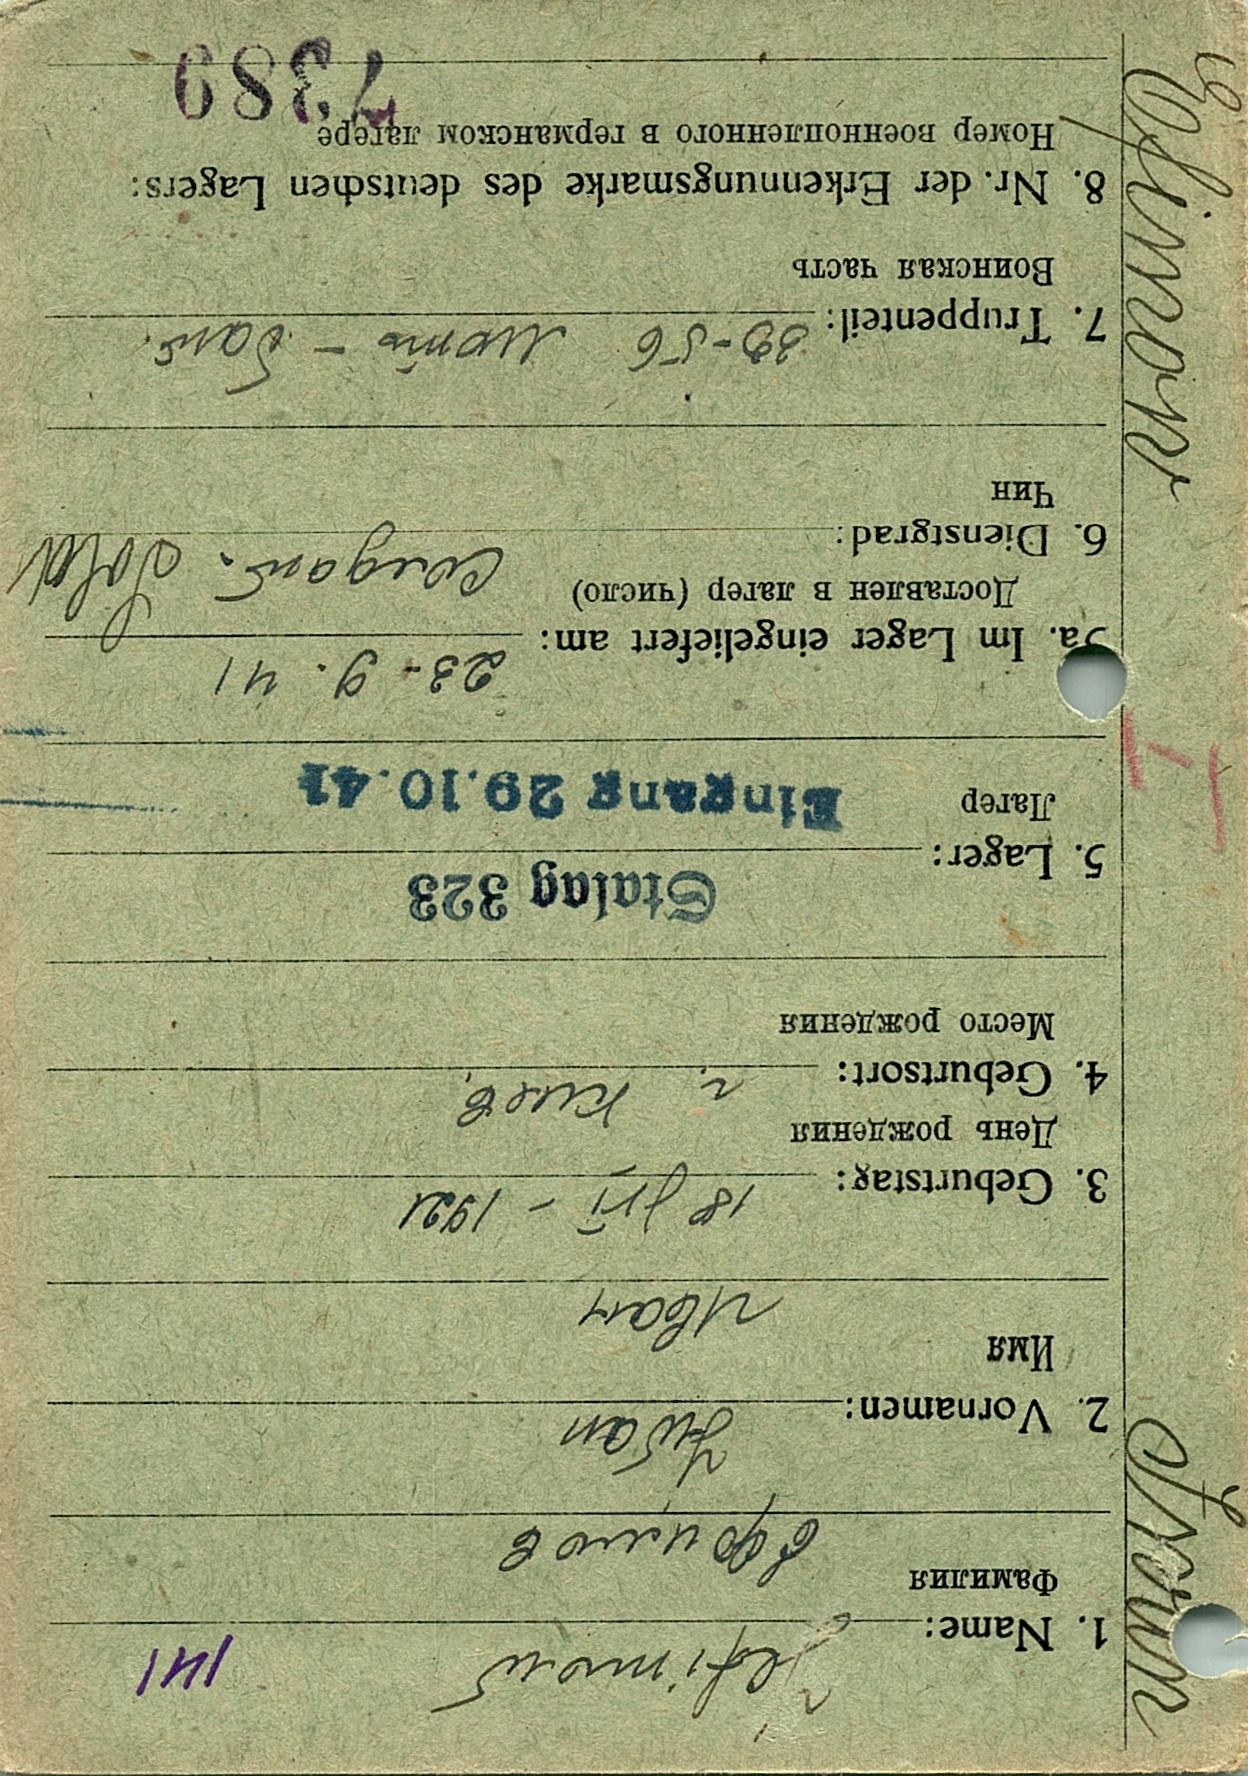 141
1. Name: Jefimow
Фамилия
Ефимов
Iwan
2. Vornamen:
Имя
Иван
3. Geburtstag: 18 - 1921
День рождения
4. Geburtsort: г. Киев.
Место рождения
Stalag 323
5. Lager:
Лагер
Eingang 29.10.41
5a. Im Lager eingeliefert am: 23-9.41
Доставлен в лагер (число)
6. Dienstgrad: Солдат. Sold
Чин
7. Truppenteil: Морт-бат.
Воинская часть
8. Nr. der Erkennungsmarke des deutschen Lagers:
Номер военнопленного в германском лагере
7389
Iwan Jefimow